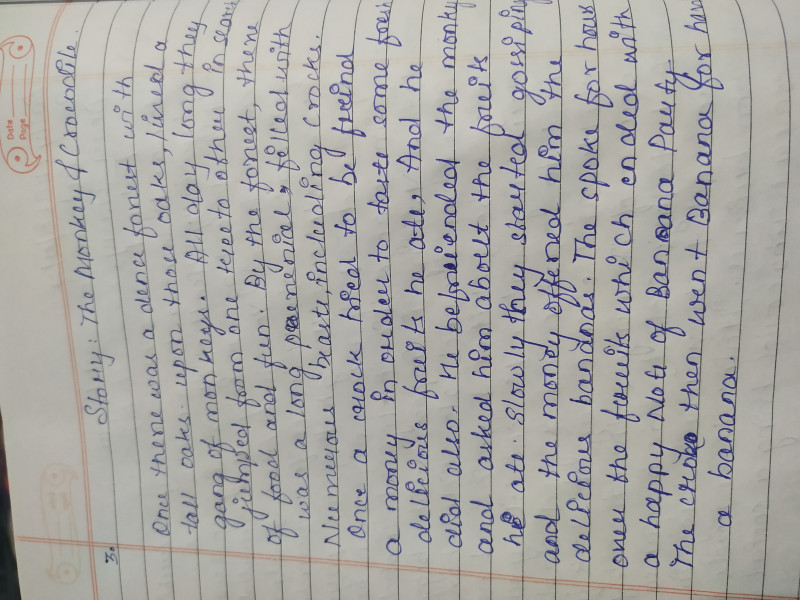 Date
Page
Story: The Monkey & Crocodile.
Once there was a dence forest with
tall oaks. upon those oaks, lived a
gang of monkeys. All day long they
jumped from one tree to other in
of food and fun. By the forest, there
was a long perenial, filled with
Numerous beasts, including Crocks.
Once a crock tried to be freind
a money in order to taste some
delicious fruits he ate, And he
did also. He befriended the monkey
and asked him about the fruits
he ate. Slowly they started
and the money offered him the
delicious bananas. The spoke for hours
over the fruits which ended with
a happy Note of Banana Party.
The crok then went Banana for
a banana.